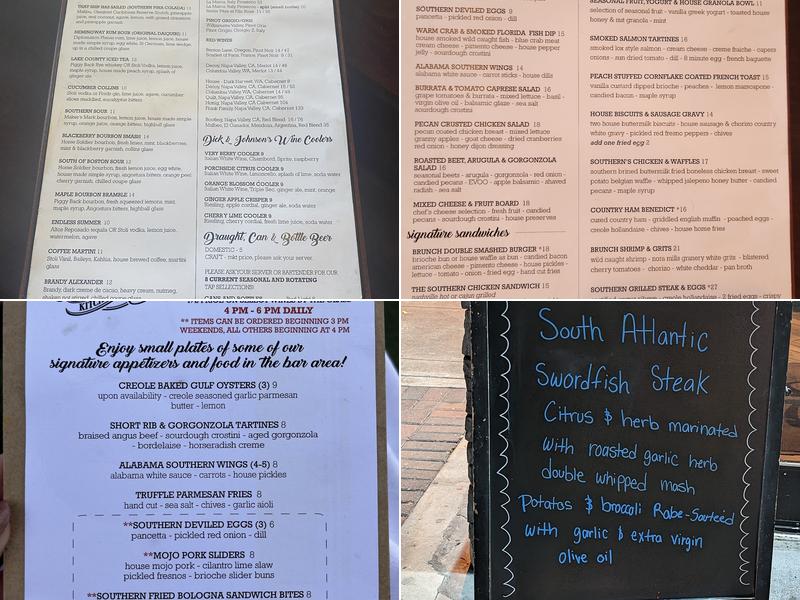 THAT SHIP HAS SAILED (SOUTHERN PIÑA COLADA) 11
HEMINGWAY RUM SOUR (ORIGINAL DAIQUIRI) 11
LAKE COUNTY ICED TEA 12
maple syrup, house made peach syrup, splash of
ginger ale
CUCUMBER COLLINS 10
SOUTHERN SOUR 11
BLACKBERRY BOURBON SMASH 14
Horse Soldier bourbon, fresh lime, mint, blackberries,
mint & blackberry garnish, collins glass
SOUTH OF BOSTON SOUR 12
Horse Soldier bourbon, fresh lemon juice, egg white,
house made simple syrup, angostura bitters, orange peel
cherry garnish, chilled coupe glass
MAPLE BOURBON BRAMBLE 14
Piggy Back bourbon, fresh squeezed lemons, mint,
maple syrup, Angostura bitters, highball glass
ENDLESS SUMMER 10
Altos Reposado tequila OR Stoli Vodka, lemon juice,
watermelon, agave
COFFEE MARTINI 11
Stoli Vanil, Baileys, Kahlua, house brewed coffee, martini
glass
BRANDY ALEXANDER 12
Brandy, dark creme de cacao, heavy cream, nutmeg,
PINOT GRIGIO/GRIS
RED WINES
Dick & Johnson's Wine Coolers
VERY BERRY COOLER 9
Italian White Wine, Chambord, Sprite, raspberry
PORCHSIDE CITRUS COOLER 9
Italian White Wine, Limoncello, splash of lime, soda water
ORANGE BLOSSOM COOLER 9
Italian White Wine, Triple Sec, ginger ale, mint, orange
GINGER APPLE CRISPER 9
Riesling, apple cordial, ginger ale, soda water
CHERRY LIME COOLER 9
Riesling, cherry cordial, fresh lime juice, soda water
Draught, Can & Bottle Beer
DOMESTIC - 5
CRAFT - mkt price, please ask your server.
PLEASE ASK YOUR SERVER OR BARTENDER FOR OUR
8 CURRENT SEASONAL AND ROTATING
TAP SELECTIONS
SOUTHERN DEVILED EGGS 9
pancetta - pickled red onion - dill
WARM CRAB & SMOKED FLORIDA FISH DIP 15
house smoked local caught fish - blue crab meat
cream cheese - pimento cheese - house pepper
jelly - sourdough crostini
ALABAMA SOUTHERN WINGS 14
alabama white sauce - carrot sticks - house dills
BURRATA & TOMATO CAPRESE SALAD 16
grape tomatoes & burrata - mixed lettuce - basil -
virgin olive oil - balsamic glaze - sea salt
sourdough crostini
PECAN CRUSTED CHICKEN SALAD 18
pecan coated chicken breast - mixed lettuce
granny apples - goat cheese - dried cranberries
red onion - honey dijon dressing
ROASTED BEET, ARUGULA & GORGONZOLA
SALAD 16
seasonal beets - arugula - gorgonzola - red onion -
candied pecans - EVOO - apple balsamic - shaved
radish - sea salt
MIXED CHEESE & FRUIT BOARD 18
chef's cheese selection - fresh fruit - candied
pecans - sourdough crostini - house preserves
signature sandwiches
BRUNCH DOUBLE SMASHED BURGER *18
brioche bun or house waffle as bun - candied bacon
american cheese - pimento cheese - house pickles -
lettuce - tomato - onion - fried egg - hand cut fries
THE SOUTHERN CHICKEN SANDWICH 15
nashville hot or cajun grilled
SEASONAL FRUIT, YOGURT & HOUSE GRANOLA BOWL 11
selection of seasonal fruit - vanilla greek yogurt - toasted house
honey & nut granola - mint
SMOKED SALMON TARTINES 16
smoked lox style salmon - cream cheese - creme fraiche - capers
onions - sun dried tomato - dill - 8 minute egg - french baguette
PEACH STUFFED CORNFLAKE COATED FRENCH TOAST 15
vanilla custard dipped brioche - peaches - lemon marscapone-
candied bacon - maple syrup
HOUSE BISCUITS & SAUSAGE GRAVY 14
two house buttermilk biscuits - house sausage & chorizo country
white gravy - pickled red fresno peppers - chives
add one fried egg 2
SOUTHERN'S CHICKEN & WAFFLES 17
southern brined buttermilk fried boneless chicken breast - sweet
potato belgian waffle - whipped jalepeno honey butter - candied
pecans - maple syrup
COUNTRY HAM BENEDICT *16
cured country ham - griddled english muffin - poached eggs -
creole hollandaise - chives - house home fries
BRUNCH SHRIMP & GRITS 21
wild caught shrimp - nora mills granery white grits - blistered
cherry tomatoes - chorizo - white cheddar - pan broth
SOUTHERN GRILLED STEAK & EGGS *27
KITCHEN
4 PM - 6 PM DAILY
** ITEMS CAN BE ORDERED BEGINNING 3 PM
WEEKENDS, ALL OTHERS BEGINNING AT 4 PM
Enjoy small plates of some of our
signature appetizers and food in the bar area!
CREOLE BAKED GULF OYSTERS (3) 9
upon availability - creole seasoned garlic parmesan
butter - lemon
SHORT RIB & GORGONZOLA TARTINES 8
braised angus beef - sourdough crostini - aged gorgonzola
- bordelaise - horseradish creme
ALABAMA SOUTHERN WINGS (4-5) 8
alabama white sauce - carrots - house pickles
TRUFFLE PARMESAN FRIES 8
hand cut - sea salt - chives - garlic aioli
**SOUTHERN DEVILED EGGS (3) 6
pancetta - pickled red onion - dill
**MOJO PORK SLIDERS 8
house mojo pork - cilantro lime slaw
pickled fresnos - brioche slider buns
**SOUTHERN FRIED BOLOGNA SANDWICH BITES 8
South Atlantic
Swordfish Steak
Citrus & herb marinated
with roasted garlic herb
double whipped mash
Potatos & broccoli Rabe-Sauteed
with garlic & extra virgin
olive oil